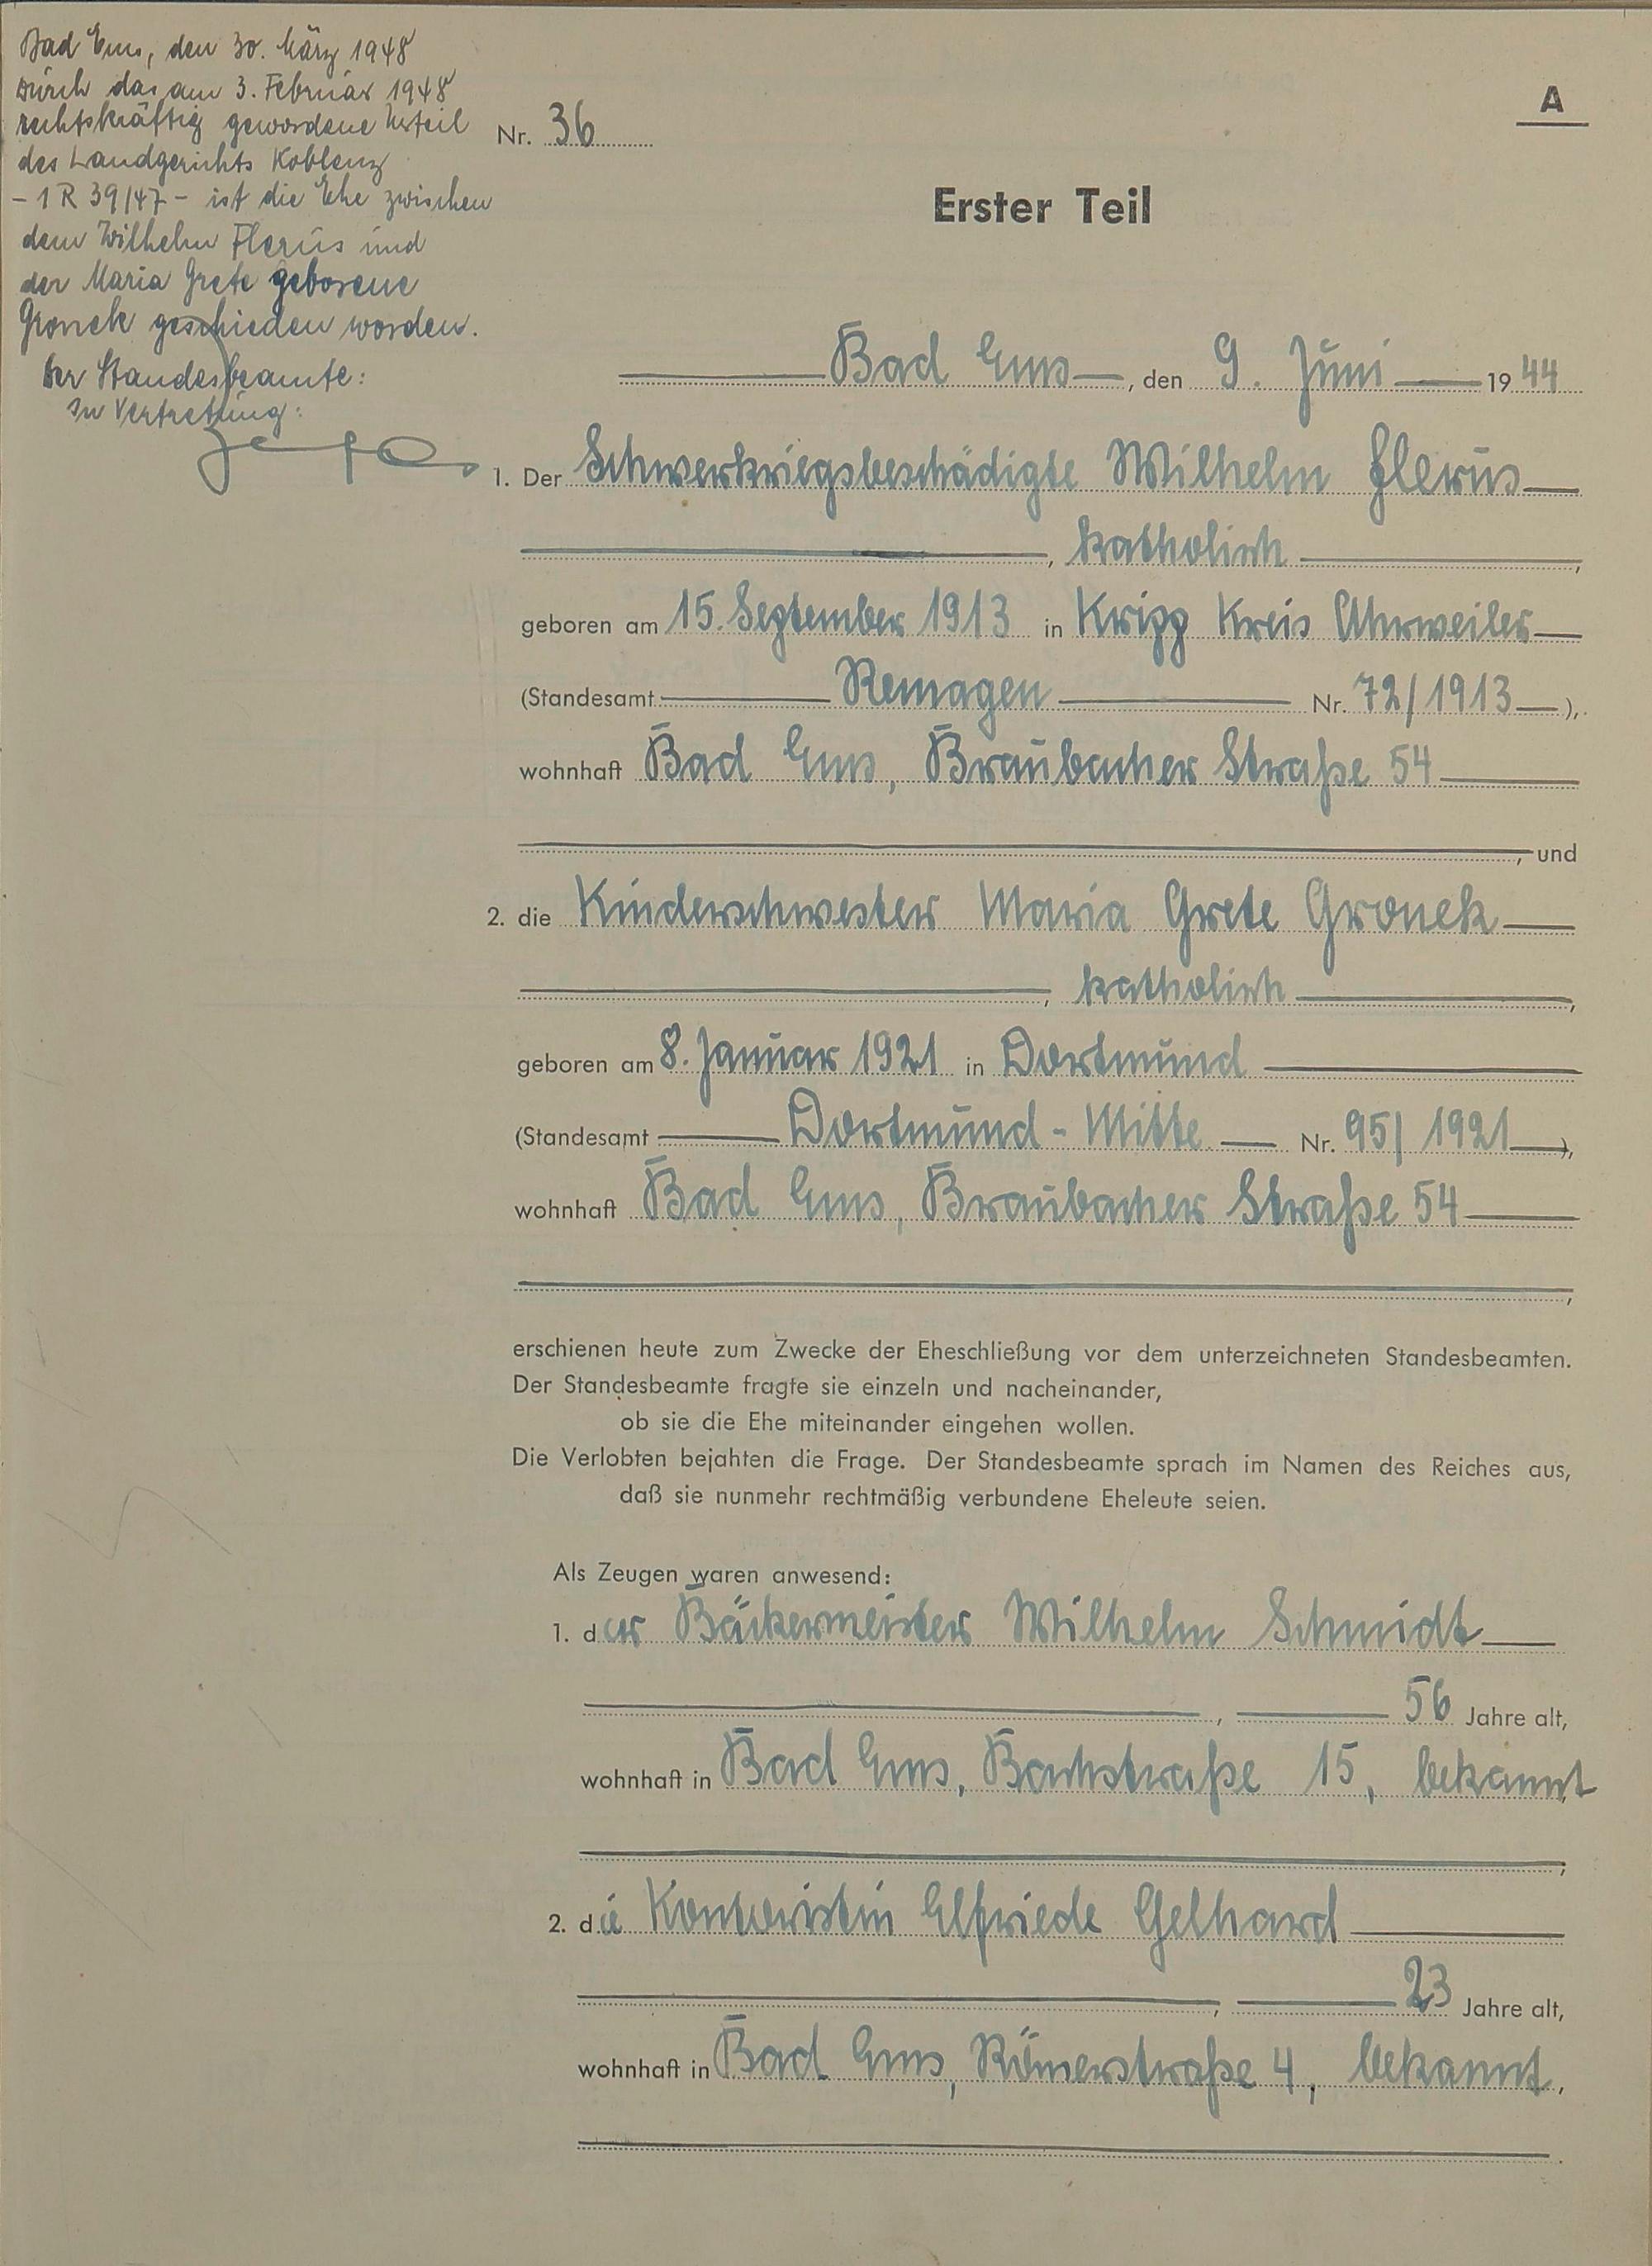 Bad Ems, den 30. März 1948
Durch das am 3. Februar 1948
rechtskräftig gewordene Urteil
des Landgerichts Koblenz
- 1 R 39/47 - ist die Ehe zwischen
dem Wilhelm Flerus und
der Maria Grete geborene
Gronek geschieden worden.
Der Standesbeamte:
In Vertretung:
A
Nr. 36
Erster Teil
Bad Ems, den 9. Juni 1944
1. Der Schwerkriegsbeschädigte Wilhelm Flerus
, katholisch,
geboren am 15. September 1913 in Kripp Kreis Ahrweiler
(Standesamt Remagen Nr. 72/1913),
wohnhaft Bad Ems, Braubacher Straße 54
, und
2. die Kinderschwester Maria Grete Gronek
, katholisch,
geboren am 8. Januar 1921 in Dortmund
(Standesamt Dortmund-Mitte Nr. 95/1921),
wohnhaft Bad Ems, Braubacher Straße 54
,
erschienen heute zum Zwecke der Eheschließung vor dem unterzeichneten Standesbeamten.
Der Standesbeamte fragte sie einzeln und nacheinander,
ob sie die Ehe miteinander eingehen wollen.
Die Verlobten bejahten die Frage. Der Standesbeamte sprach im Namen des Reiches aus,
daß sie nunmehr rechtmäßig verbundene Eheleute seien.
Als Zeugen waren anwesend:
1. der Bäckermeister Wilhelm Schmidt
, 56 Jahre alt,
wohnhaft in Bad Ems, Bachstraße 15, bekannt
,
2. die Kontoristin Elfriede Gelhard
, 23 Jahre alt,
wohnhaft in Bad Ems, Römerstraße 4, bekannt,
.